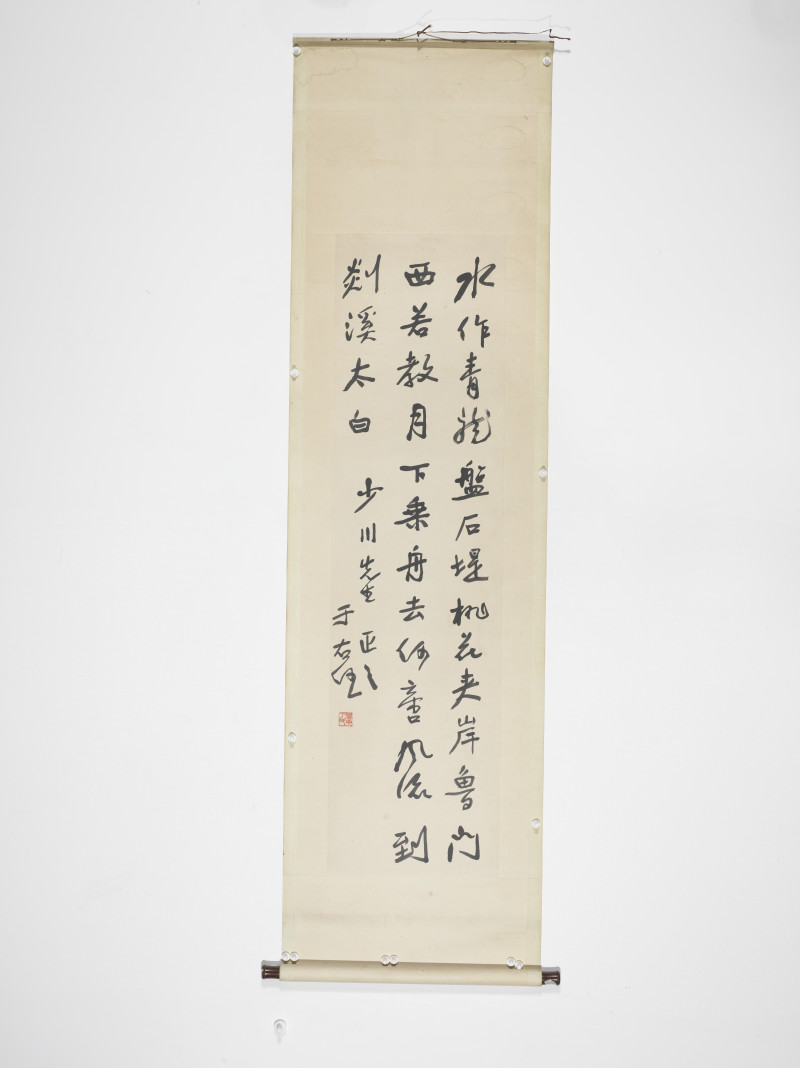 水作青龍盤石堤桃花夾岸魯門
西若教月下乗舟去何啻風流到
剡溪太白
少川先生正之
于右任